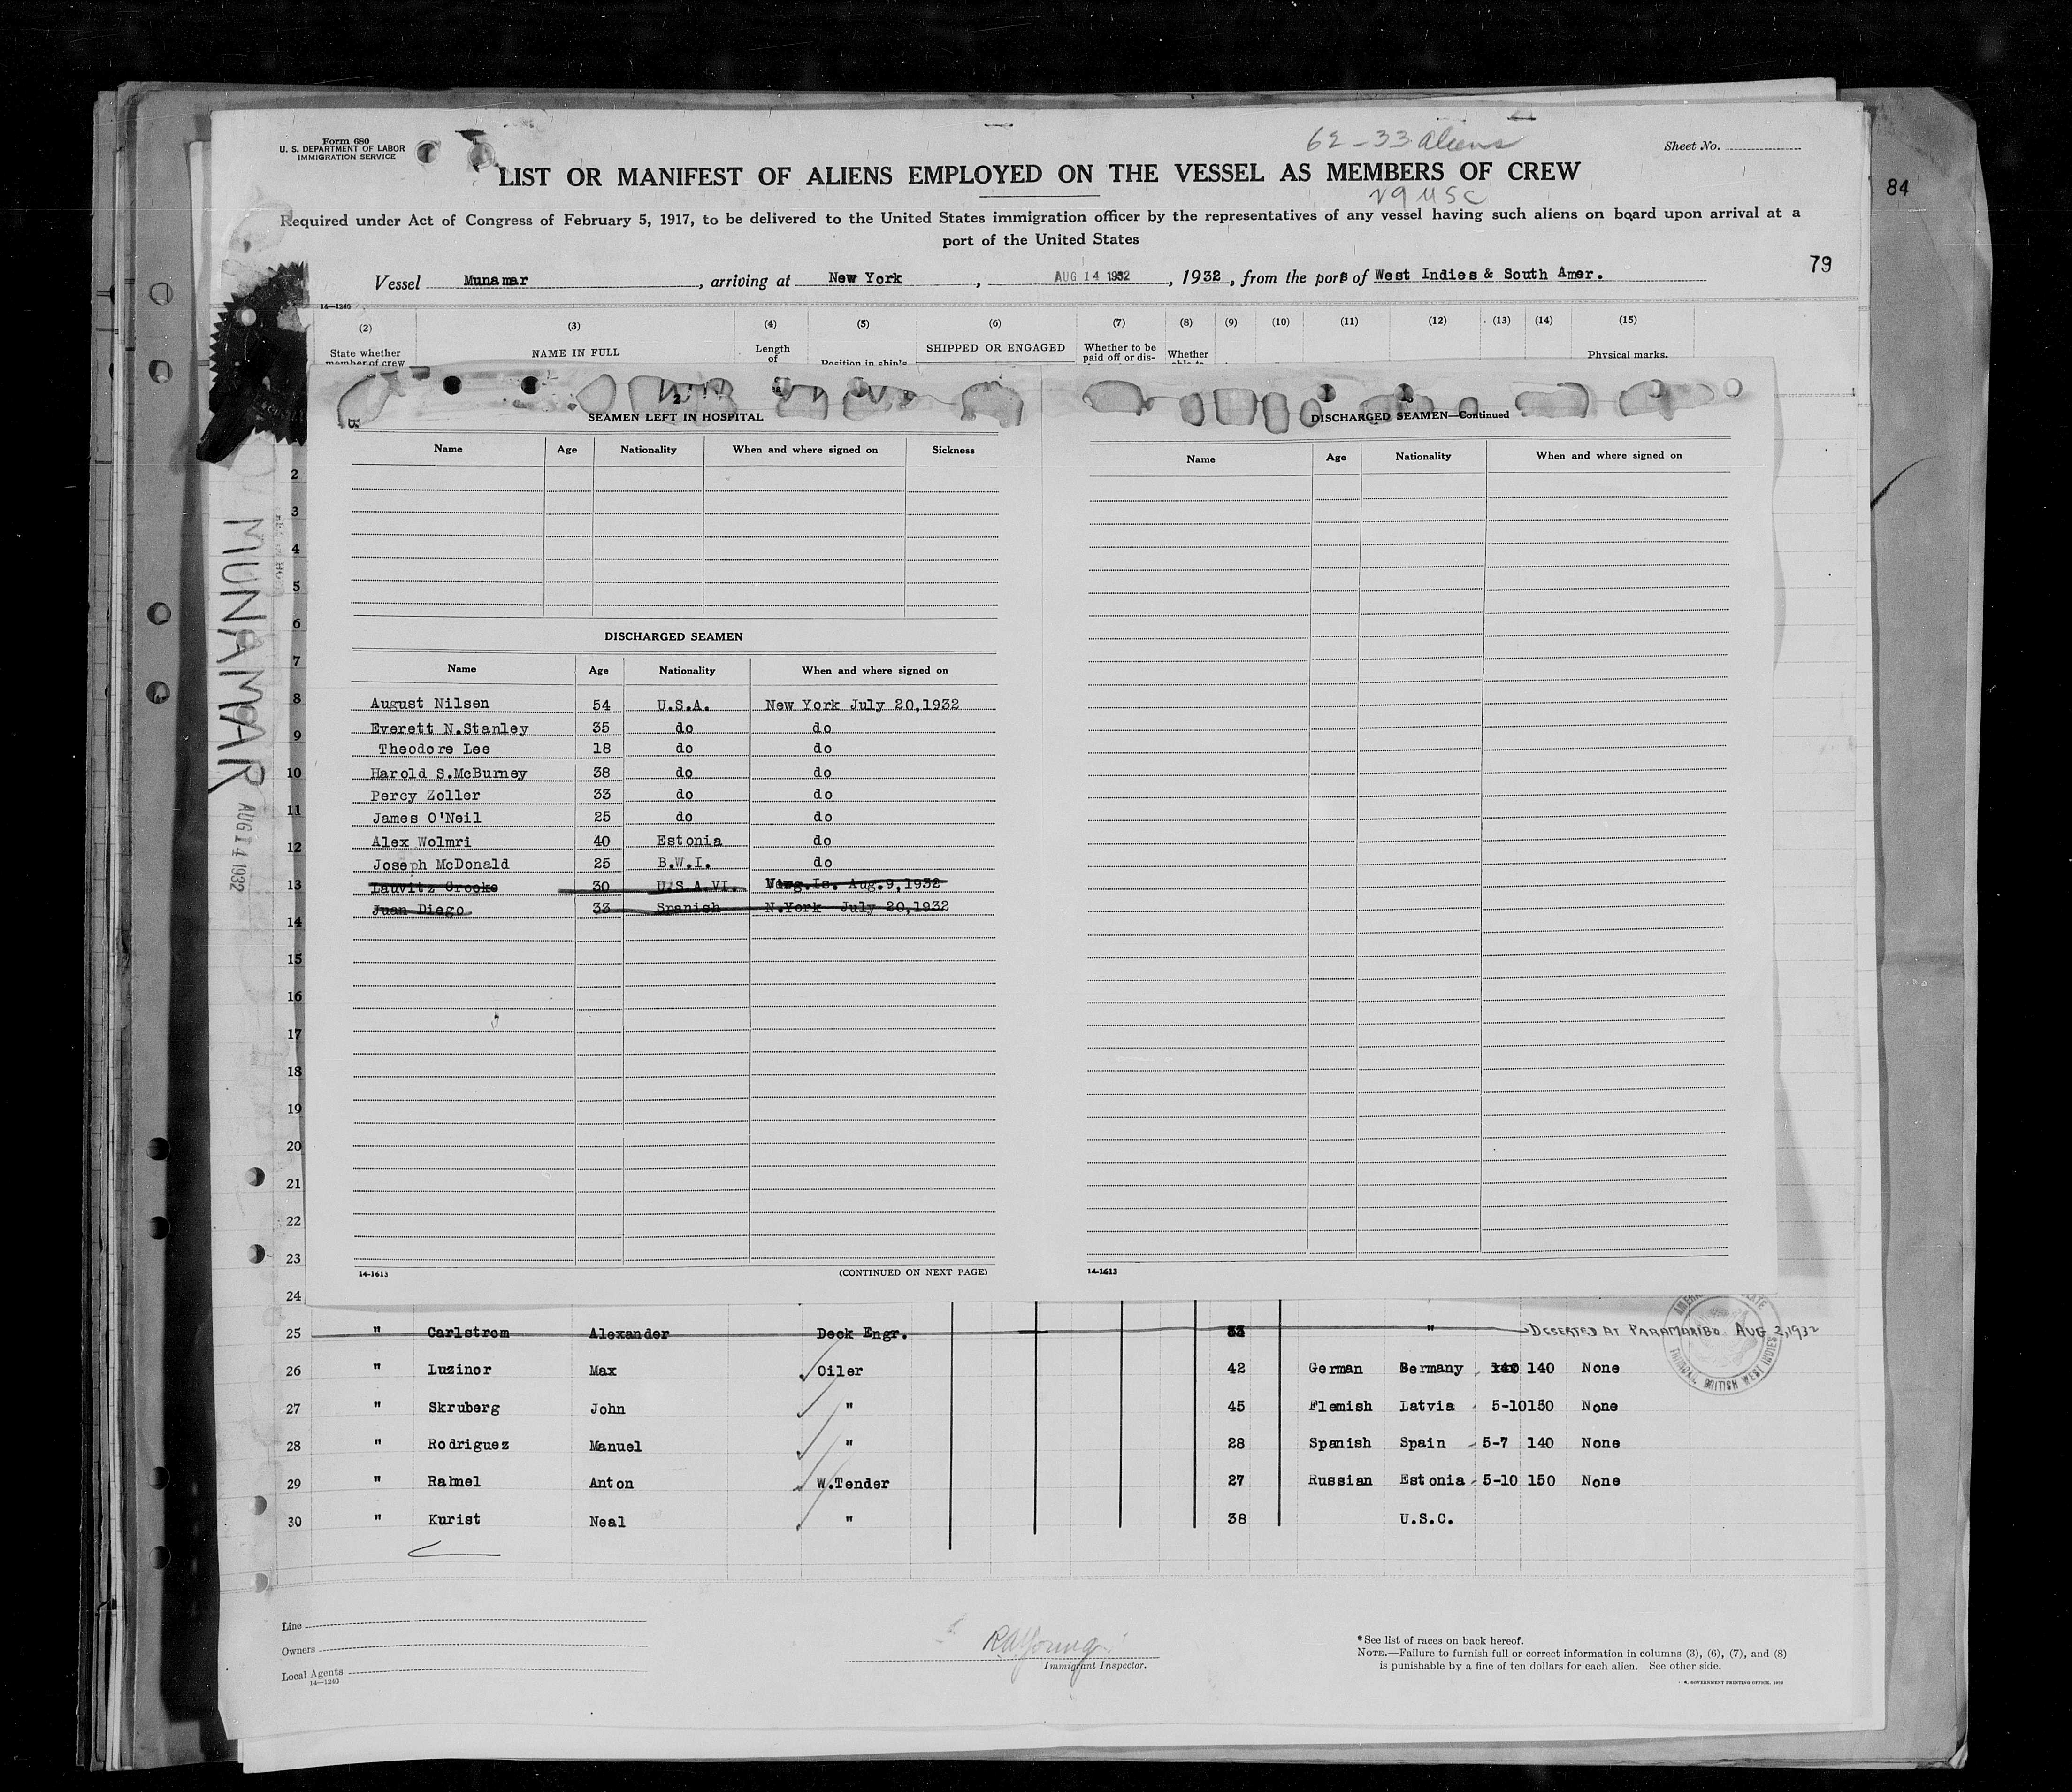 Form 680
U. S. DEPARTMENT OF LABOR
IMMIGRATION SERVICE
62-33 aliens
Sheet No.
LIST OR MANIFEST OF ALIENS EMPLOYED ON THE VESSEL AS MEMBERS OF CREW
29 USC
84
Required under Act of Congress of February 5, 1917, to be delivered to the United States immigration officer by the representatives of any vessel having such aliens on board upon arrival at a
port of the United States
79
Vessel Munamar, arriving at New York, AUG 14 1932, 1932, from the ports of West Indies & South Amer.
14—1240
(2) (3) (4) (5) (6) (7) (8) (9) (10) (11) (12) (13) (14) (15)
State whether member of crew
NAME IN FULL
Length of
Position in ship's
SHIPPED OR ENGAGED
Whether to be paid off or dis-
Whether able to
Physical marks.
SEAMEN LEFT IN HOSPITAL
Name Age Nationality When and where signed on Sickness
DISCHARGED SEAMEN
Name Age Nationality When and where signed on
August Nilsen 54 U.S.A. New York July 20,1932
Everett N.Stanley 35 do do
Theodore Lee 18 do do
Harold S.McBurney 38 do do
Percy Zoller 33 do do
James O'Neil 25 do do
Alex Wolmri 40 Estonia do
Joseph McDonald 25 B.W.I. do
Lauvitz Crooke 30 U.S.A.VI. Virg.Is. Aug.9,1932
Juan Diego 33 Spanish N.York July 20,1932
14-1613
(CONTINUED ON NEXT PAGE)
DISCHARGED SEAMEN—Continued
Name Age Nationality When and where signed on
14-1613
MUNAMAR
AUG 14 1932
2
3
4
5
6
7
8
9
10
11
12
13
14
15
16
17
18
19
20
21
22
23
24
25 " Carlstrom Alexander Deck Engr. 33 " DESERTED AT PARAMARIBO AUG 2,1932
26 " Luzinor Max Oiler 42 German Germany 140 140 None
27 " Skruberg John " 45 Flemish Latvia 5-10 150 None
28 " Rodriguez Manuel " 28 Spanish Spain 5-7 140 None
29 " Rahnel Anton W.Tender 27 Russian Estonia 5-10 150 None
30 " Kurist Neal " 38 U.S.C.
TRINIDAD, BRITISH WEST INDIES
Line
Owners
Local Agents
14—1240
RA Young
Immigrant Inspector.
*See list of races on back hereof.
NOTE.—Failure to furnish full or correct information in columns (3), (6), (7), and (8)
is punishable by a fine of ten dollars for each alien. See other side.
GOVERNMENT PRINTING OFFICE